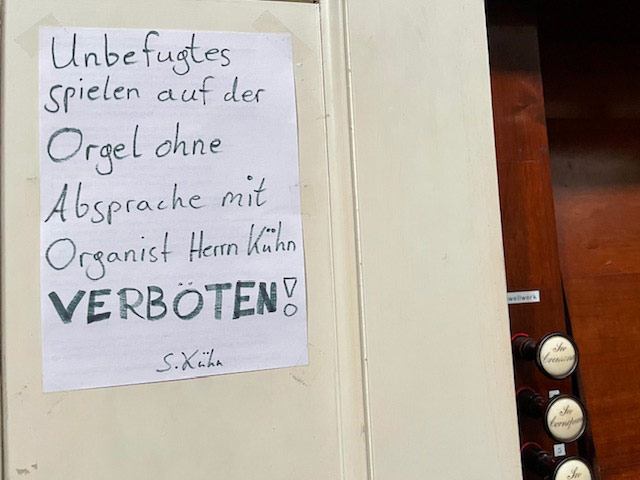 Unbefugtes
spielen auf der
Orgel ohne
Absprache mit
Organist Herrn Kühn
VERBÖTEN!
S. Kühn